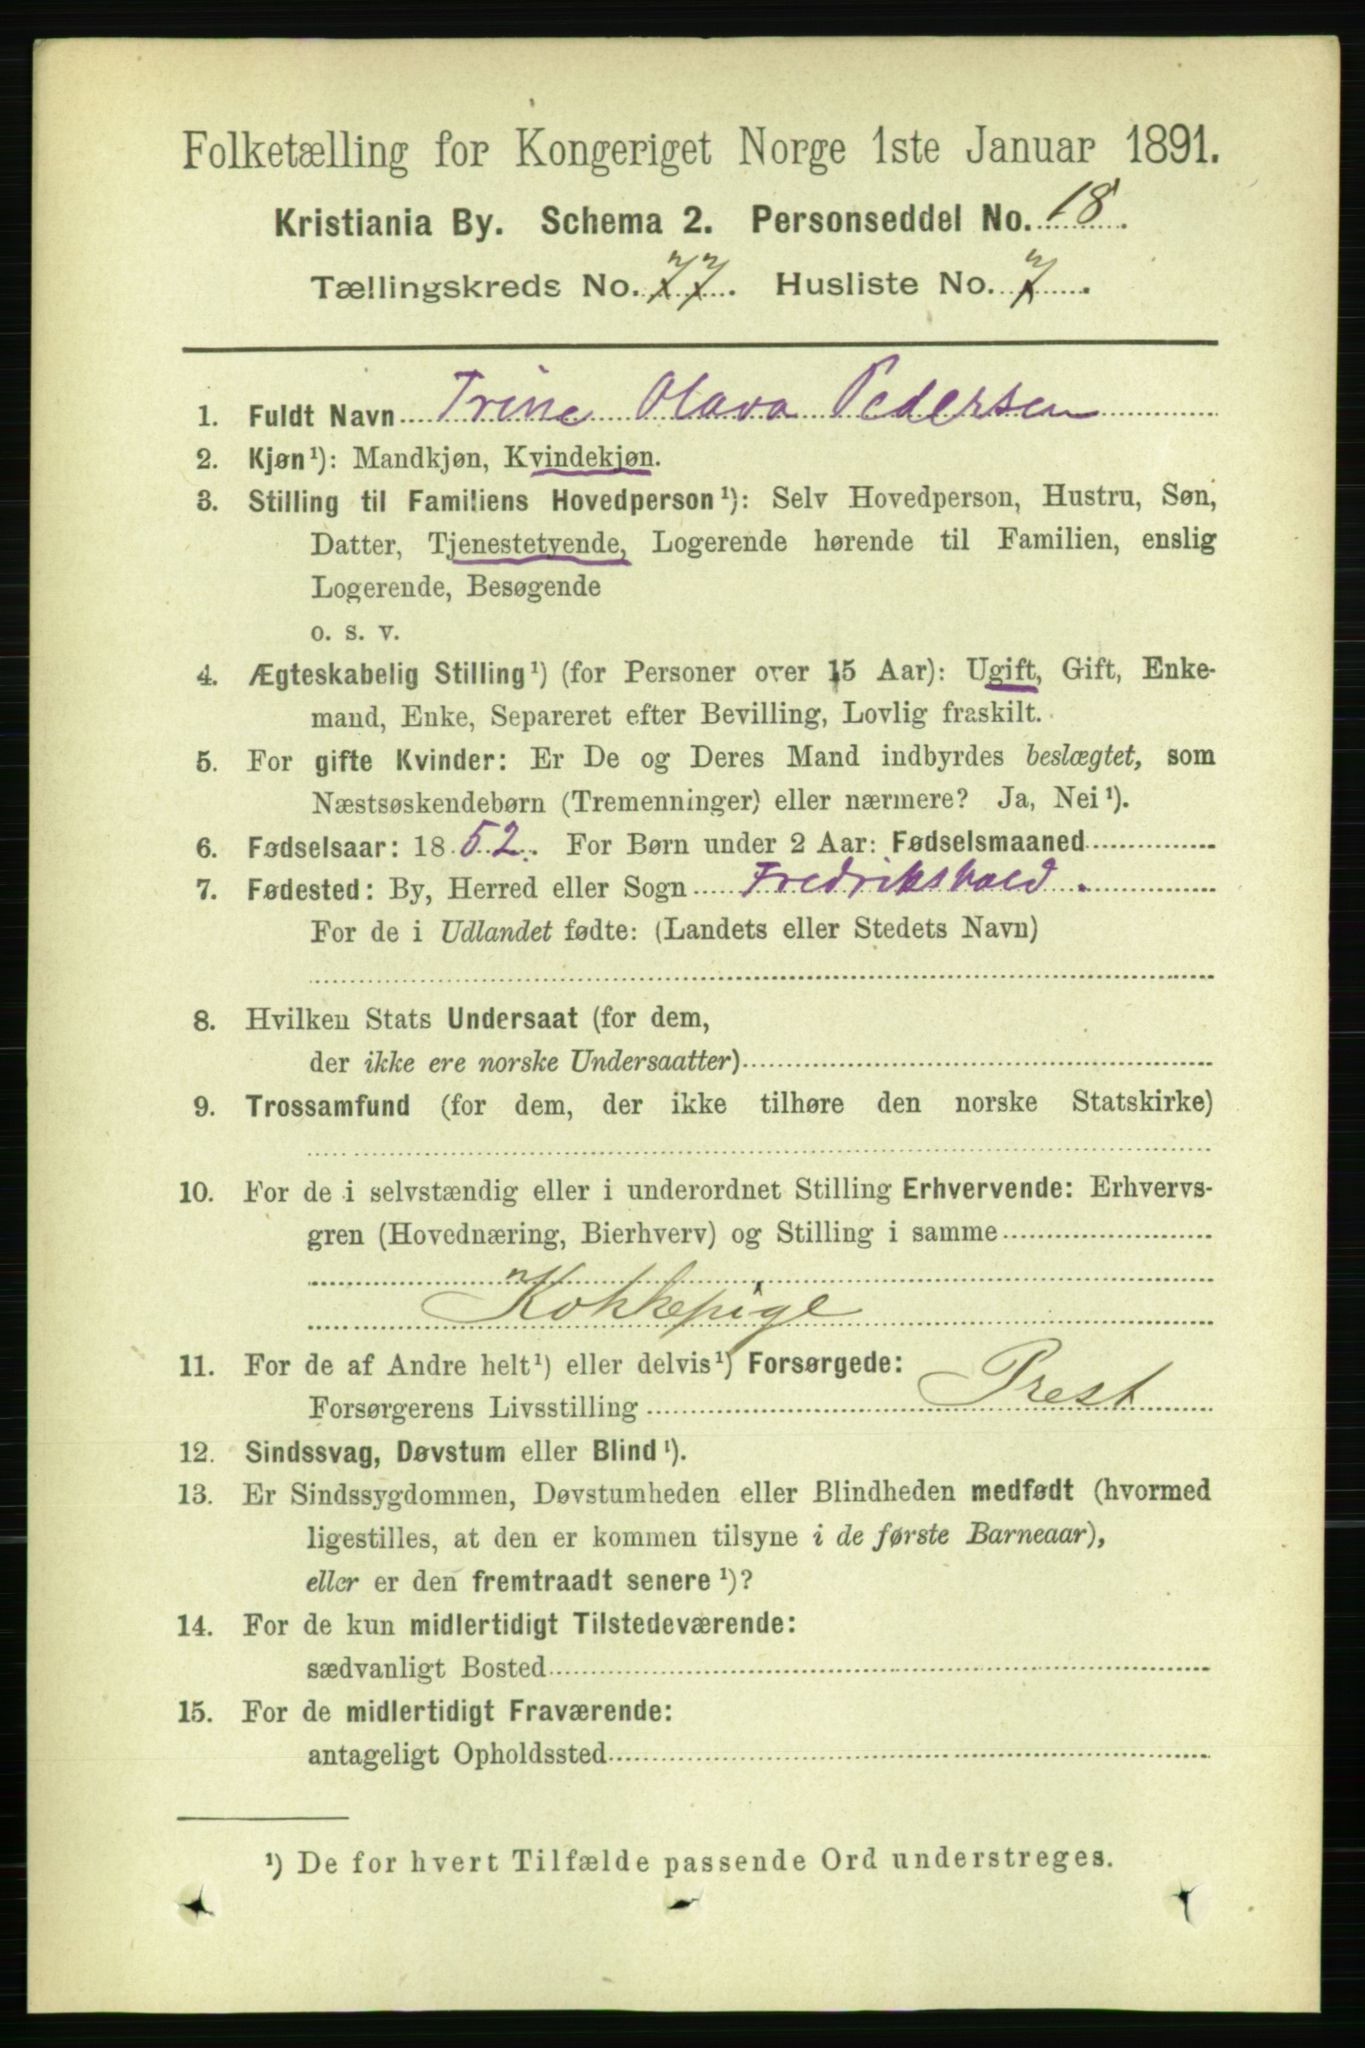 Folketælling for Kongeriget Norge 1ste Januar 1891.
Kristiania By. Schema 2. Personseddel No. 18.
Tællingskreds No. 77. Husliste No. 7.
1. Fuldt Navn Trine Olava Pedersen
2. Kjøn¹): Mandkjøn, Kvindekjøn.
3. Stilling til Familiens Hovedperson¹): Selv Hovedperson, Hustru, Søn,
Datter, Tjenestetyende, Logerende hørende til Familien, enslig
Logerende, Besøgende
o. s. v.
4. Ægteskabelig Stilling¹) (for Personer over 15 Aar): Ugift, Gift, Enke-
mand, Enke, Separeret efter Bevilling, Lovlig fraskilt.
5. For gifte Kvinder: Er De og Deres Mand indbyrdes beslægtet, som
Næstsøskendebørn (Tremenninger) eller nærmere? Ja, Nei¹).
6. Fødselsaar: 1852. For Børn under 2 Aar: Fødselsmaaned
7. Fødested: By, Herred eller Sogn Fredrikshald.
For de i Udlandet fødte: (Landets eller Stedets Navn)
8. Hvilken Stats Undersaat (for dem,
der ikke ere norske Undersaatter)
9. Trossamfund (for dem, der ikke tilhøre den norske Statskirke)
10. For de i selvstændig eller i underordnet Stilling Erhvervende: Erhvervs-
gren (Hovednæring, Bierhverv) og Stilling i samme
Kokkepige
11. For de af Andre helt¹) eller delvis¹) Forsørgede:
Forsørgerens Livsstilling Prest
12. Sindssvag, Døvstum eller Blind¹).
13. Er Sindssygdommen, Døvstumheden eller Blindheden medfødt (hvormed
ligestilles, at den er kommen tilsyne i de første Barneaar),
eller er den fremtraadt senere¹)?
14. For de kun midlertidigt Tilstedeværende:
sædvanligt Bosted
15. For de midlertidigt Fraværende:
antageligt Opholdssted
¹) De for hvert Tilfælde passende Ord understreges.